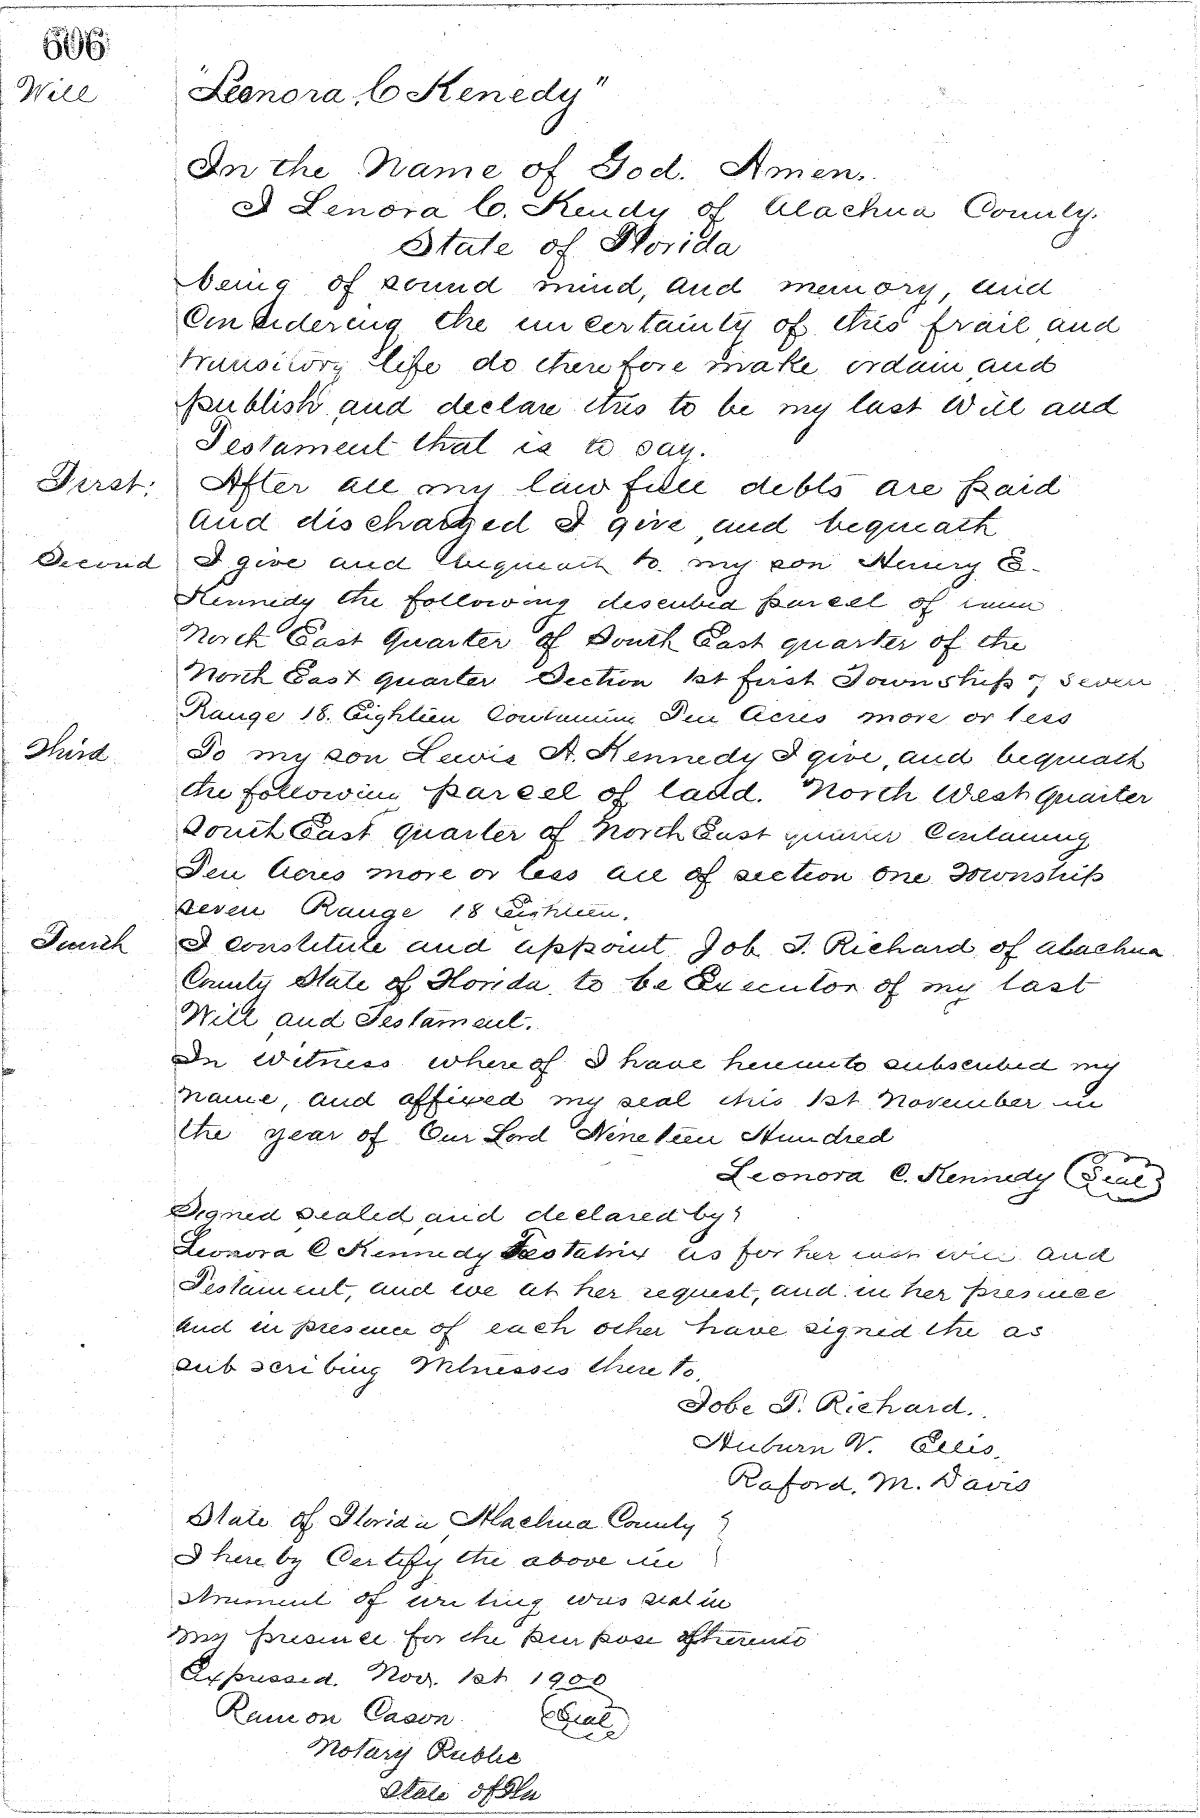 606
Will "Leonora, C Kenedy"
In the Name of God. Amen.
I Lenora C. Kendy of Alachua County.
State of Florida
being of sound mind, and memory, and
Considering the uncertainty of this frail and
transitory life do therefore make ordain and
publish and declare this to be my last Will and
Testament that is to say.
First: After all my lawfull debts are paid
and discharged I give and bequeath
Second I give and bequeath to my son Henry E.
Kennedy the following described parcel of
North East Quarter of South East quarter of the
North East quarter Section 1st first Township 7 seven
Range 18. Eighteen Containing Ten Acres more or less
Third To my son Lewis A. Kennedy I give, and bequeath
the following parcel of land. North West quarter
South East quarter of North East quarter Containing
Ten Acres more or less all of section One Township
seven Range 18 Eighteen.
Fourth I constitute and appoint Job T. Richard of Alachua
County State of Florida to be Executor of my last
Will and Testament.
In Witness where of I have hereunto subscribed my
name, and affixed my seal this 1st November in
the year of Our Lord Nineteen Hundred
Leonora C. Kennedy (Seal)
Signed sealed and declared by
Leonora C Kennedy Testatrix as for her last will and
Testament, and we at her request, and in her presence
and in presence of each other have signed the as
subscribing Witnesses thereto.
Jobe T. Richard.
Auburn V. Ellis.
Raford. M. Davis
State of Florida Alachua County
I hereby Certify the above in
strument of writing was seal in
my presence for the purpose thereunto
Expressed. Nov. 1st 1900
Ramon Cason (Seal)
Notary Public
State of Fla